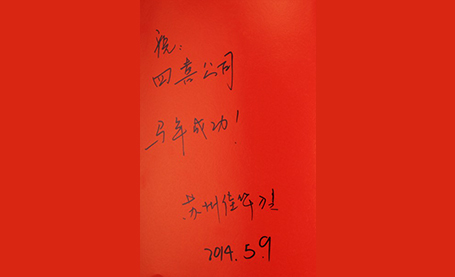 祝：
四喜公司
马年成功！
苏州
2014.5.9